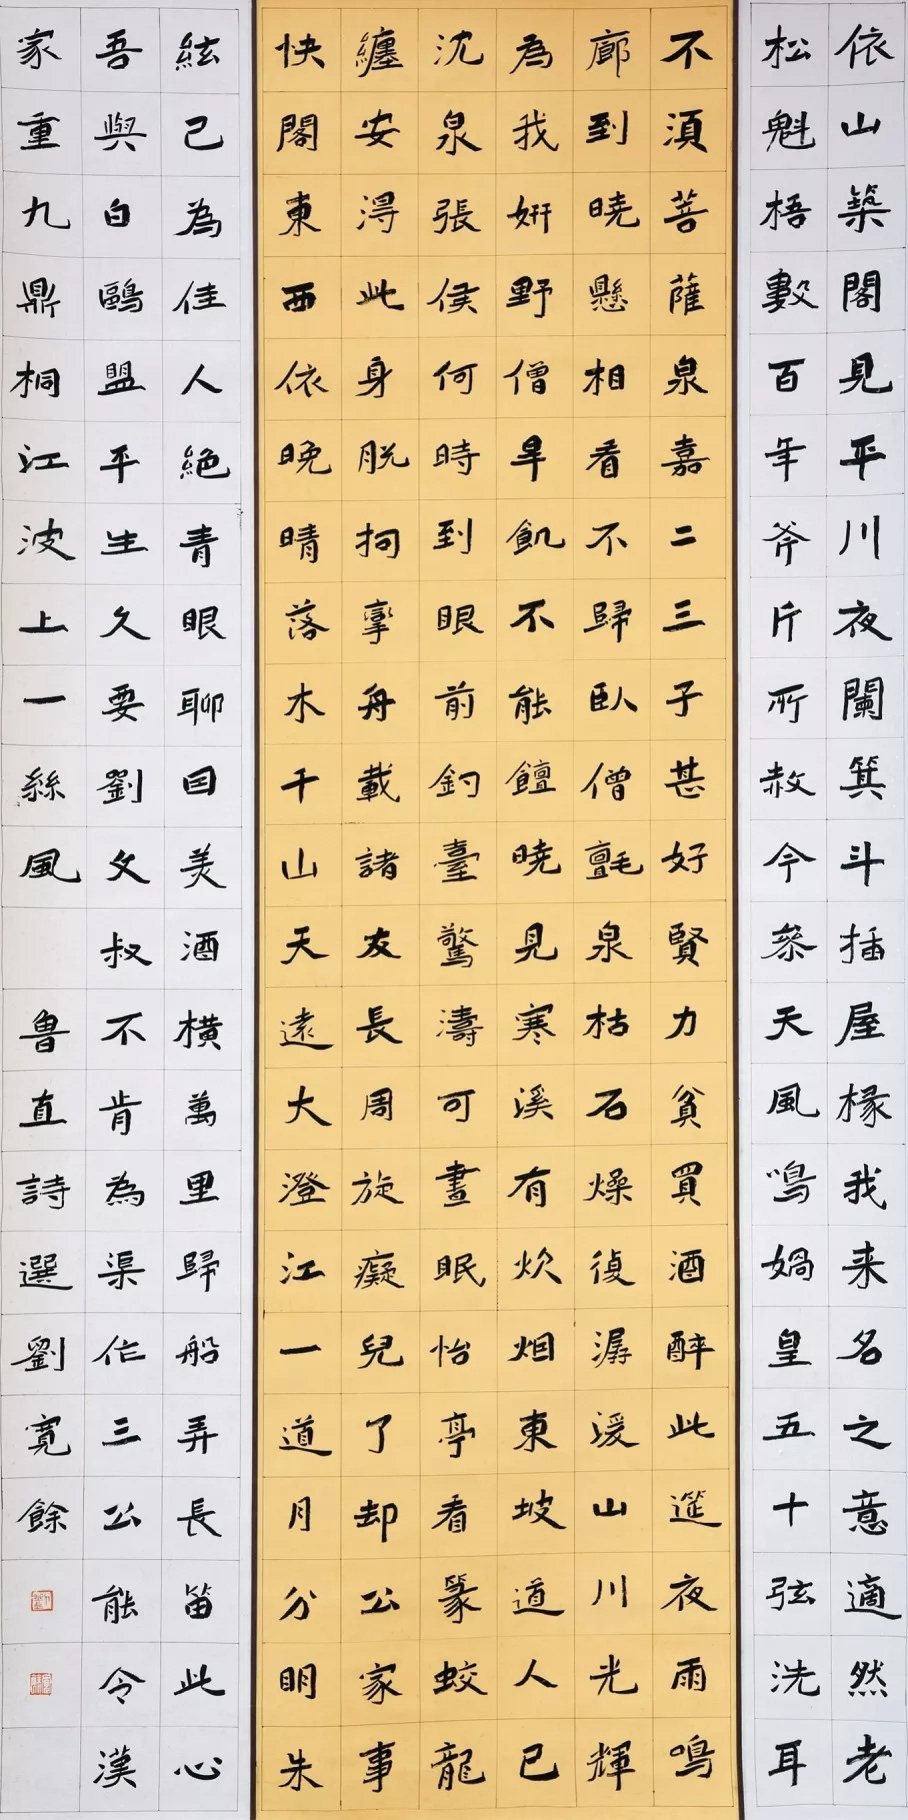 依山築閣見平川夜闌箕斗插屋椽我来名之意適然老
松魁梧數百年斧斤所赦今參天風鳴媧皇五十弦洗耳
不須菩薩泉嘉二三子甚好賢力貧買酒醉此筵夜雨鳴
廊到曉懸相看不歸臥僧氈泉枯石燥復潺湲山川光輝
為我妍野僧旱飢不能饘曉見寒溪有炊烟東坡道人已
沈泉張侯何時到眼前釣臺驚濤可晝眠怡亭看篆蛟龍
纏安得此身脱拘攣舟載諸友長周旋癡兒了却公家事
快閣東西依晚晴落木千山天遠大澄江一道月分明朱
絃已為佳人絶青眼聊因美酒橫萬里歸船弄長笛此心
吾與白鷗盟平生久要劉文叔不肯為渠作三公能令漢
家重九鼎桐江波上一絲風 魯直詩選劉寬餘